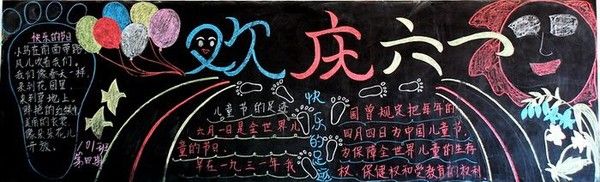 欢庆六一
快乐的节日
小鸟在前面带路
风儿吹着我们
我们像春天一样
来到花园里
来到草地上
鲜艳的红领巾
美丽的衣裳
像朵朵花儿
开放
101班
第四期
儿童节的足迹
六月一日是全世界儿
童的节日
早在一九三一年我
快乐的足迹
国曾规定把每年的
四月四日为中国儿童节
为保障全世界儿童的生存
权、保健权和受教育的权利